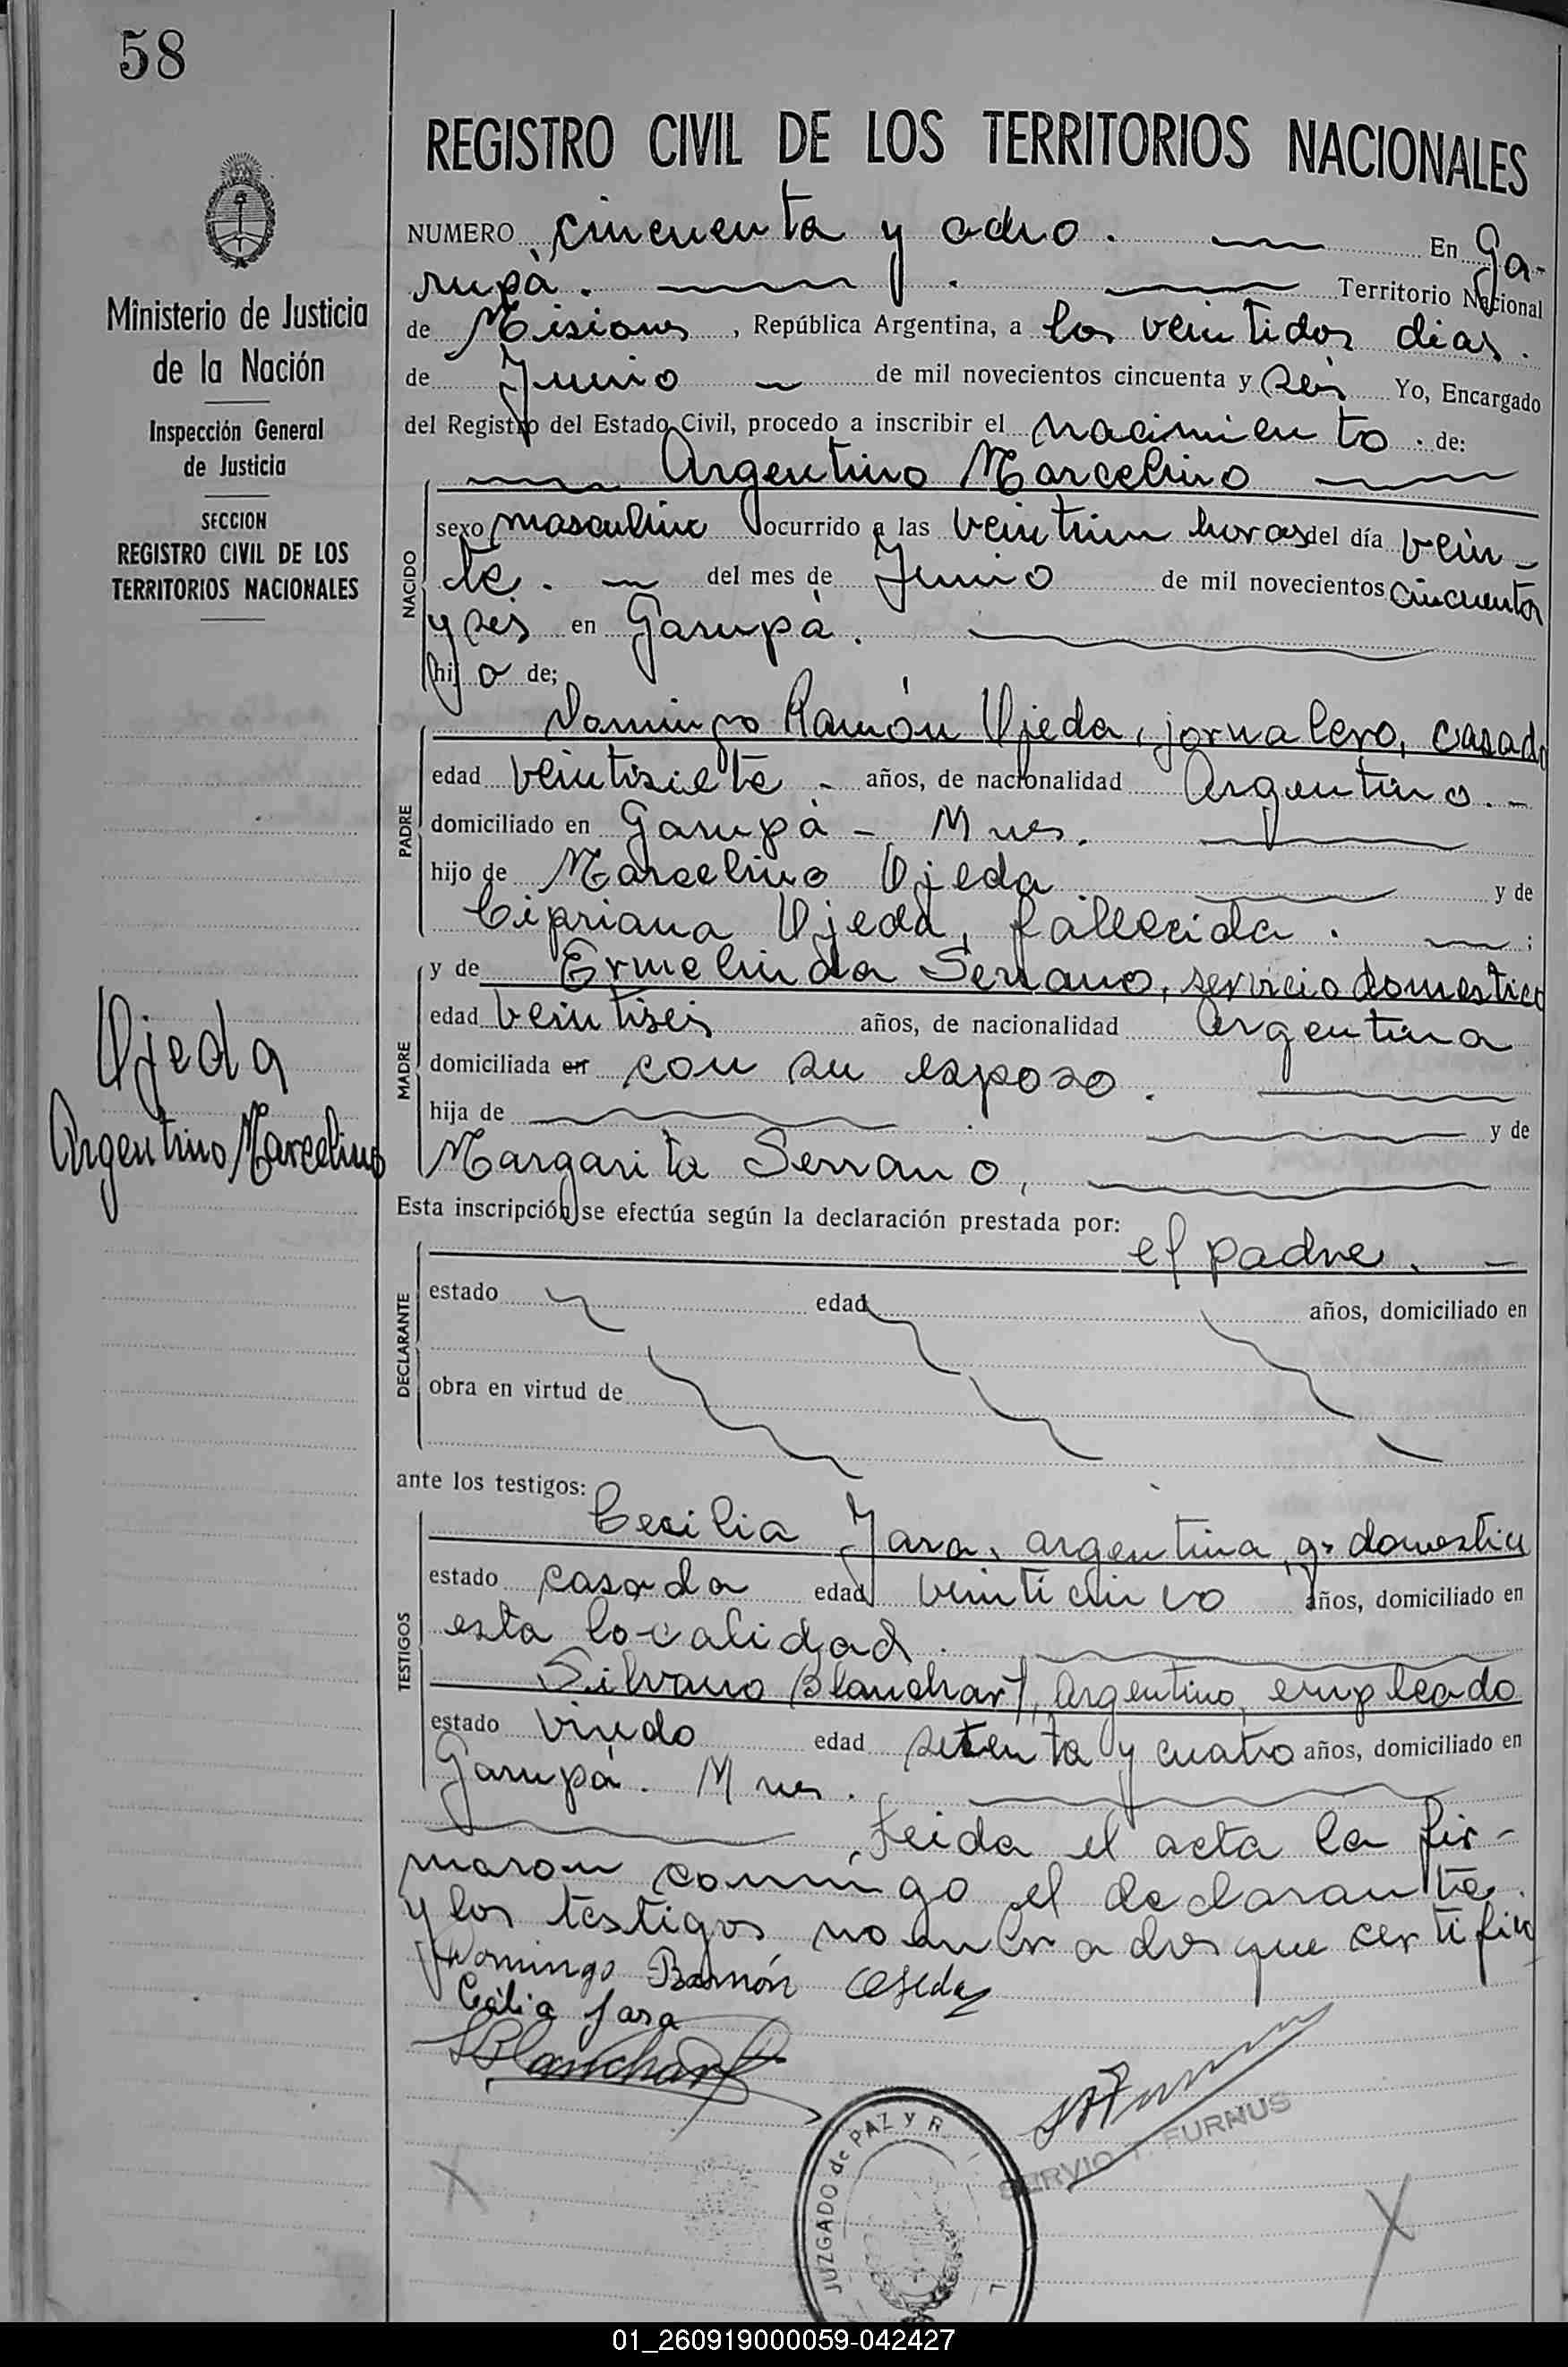 58
Ministerio de Justicia
de la Nación
Inspección General
de Justicia
SECCION
REGISTRO CIVIL DE LOS
TERRITORIOS NACIONALES
Ojeda
Argentino Marcelino
REGISTRO CIVIL DE LOS TERRITORIOS NACIONALES
NUMERO cincuenta y ocho. En Ga-
rupá. Territorio Nacional
de Misiones, República Argentina, a los veintidos dias.
de Junio de mil novecientos cincuenta y seis Yo, Encargado
del Registro del Estado Civil, procedo a inscribir el nacimiento. de:
Argentino Marcelino
NACIDO
sexo masculino ocurrido a las veintiun horas del día vein-
te. del mes de Junio de mil novecientos cincuenta
y seis en Garupá.
hijo de;
PADRE
Domingo Ramón Ojeda, jornalero, casado
edad veintisiete - años, de nacionalidad Argentino. -
domiciliado en Garupá - Mnes.
hijo de Marcelino Ojeda y de
Cipriana Ojeda, fallecida. ;
MADRE
y de Ermelinda Serrano, servicio domestico
edad veintiseis años, de nacionalidad Argentina
domiciliada en con su esposo.
hija de y de
Margarita Serrano,
Esta inscripción se efectúa según la declaración prestada por:
el padre. -
DECLARANTE
estado edad años, domiciliado en
obra en virtud de
ante los testigos:
TESTIGOS
Cecilia Jara, argentina, q. domestico
estado casada edad veinticinco años, domiciliado en
esta localidad.
Silvano Blanchart, Argentino, empleado
estado viudo edad setenta y cuatro años, domiciliado en
Garupá. Mnes.
Leida el acta la fir-
maron conmigo el declarante
y los testigos que certifico
Domingo Ramón Ojeda
Cecilia Jara
SBlanchart
JUZGADO de PAZ y R
SERVIO FURNUS
01_260919000059-042427